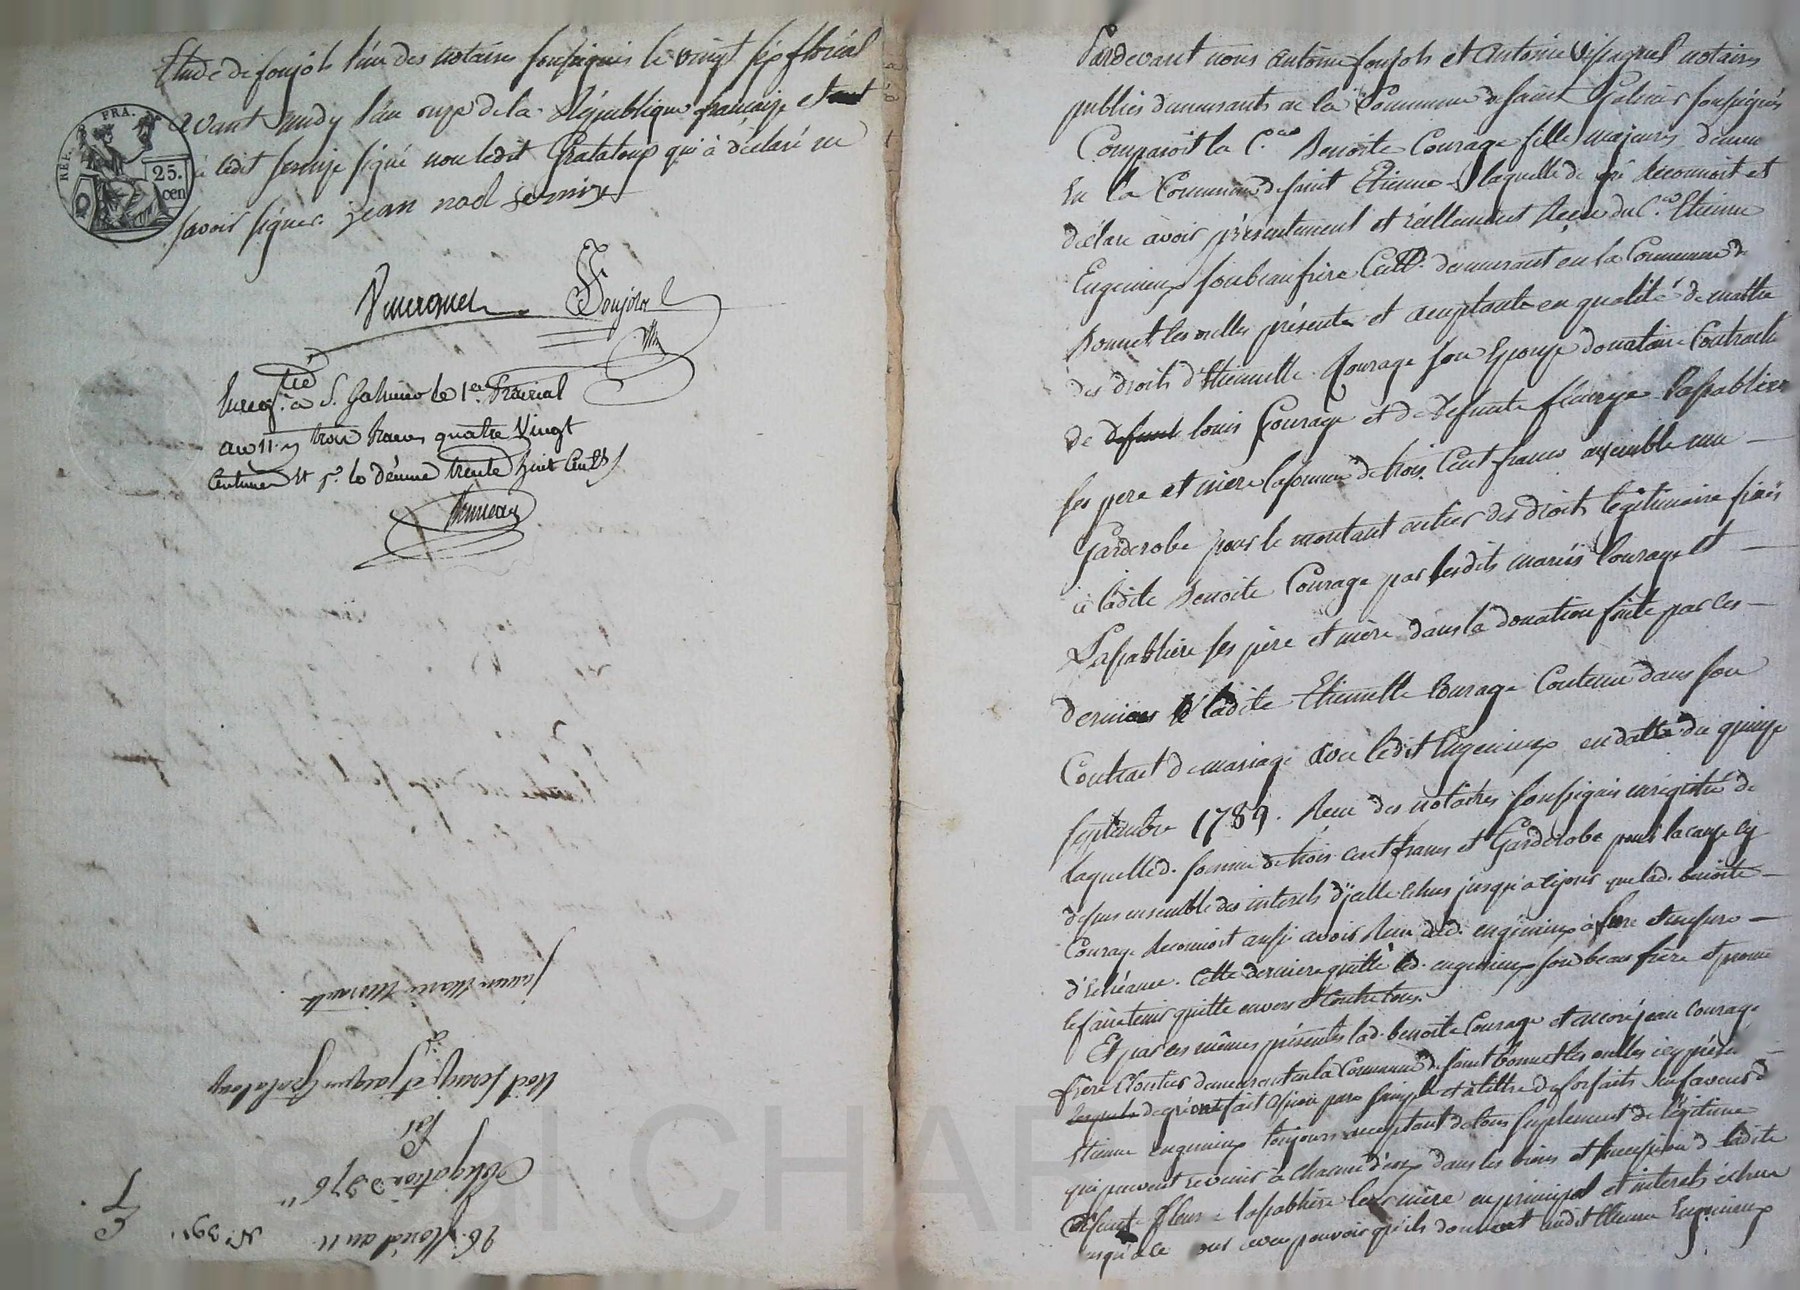 Etude de foujols l'un des notaires soussignés le vingt six floréal
avant midy l'an onze de la République française et
à ledit servije signé non ledit Grataloup qui à déclaré ne
savoir signer. jean noel servije
REP. FRA.
25. cen
Foujols
Enreg.tré à S. Galmier le 1er Prairial
an 11. trois francs quatre Vingt
Centimes et p. le décime trente huit Cent.s
jean Marie
Noel servije et jacques Grataloup
à
par
Obligation D 376 "
26 floréal an 11 N° 391
Pardevant nous antoine foujols et antoine notaires
publics demeurants en la Commune de saint Galmier soussignés
Comparoit la C.enne Benoite Courage fille majeure demeu
en la Commune de saint Etienne laquelle de gré reconnoit et
déclare avoir présentement et réellement Reçu du C.en Etienne
Engenieux son beau frère Cult. demeurant en la Commune de
Bonnet les oulles présente et acceptante en qualité de maitre
des droits d'Etiennette Courage son Epouse donataire Contractuelle
de defunt louis Courage et de defunte fleurye Laspablière
ses pere et mère la somme de trois Cent francs ensemble une
Garderobe pour le montant entier des droits légitimaire fixés
à ladite Benoite Courage par lesdits mariés Courage et
Laspablière ses père et mère dans la donation faite par ces
derniers à ladite Etiennette Courage Contenue dans son
Contract de mariage avec ledit Engenieux en datte du quinze
septembre 1789. Reçu des notaires soussignés enregistré de
laquelle d. somme de trois cent francs et Garderobe pour la cause cy
dessus ensemble des interets d'jcelle échus jusqu'a ce jour que lad. benoite
Courage reconnoit aussi avoir Reçu dud. engenieux à fure et mesure
d'échéance. Cette derniere quitte led. engenieux son beau frère et promet
le faire tenir quitte envers et Contre tous.
Et par ces mêmes présentes lad. benoite Courage et encore jean Courage
frère Cloutier demeurant en la Commune de saint bonnet les oulles icy présent
lesquels de gré ont fait Cession pure simple et à titre de forfait en faveur d'
Etienne engenieux toujours acceptant de tous suplement de légitime
qui peuvent revenir à chacun d'eux dans les biens et succession de ladite
defunte fleurie laspablière leur mère en principal et interets échus
jusqu'à ce jour avec pouvoir qu'ils donnent audit Etienne Engenieux